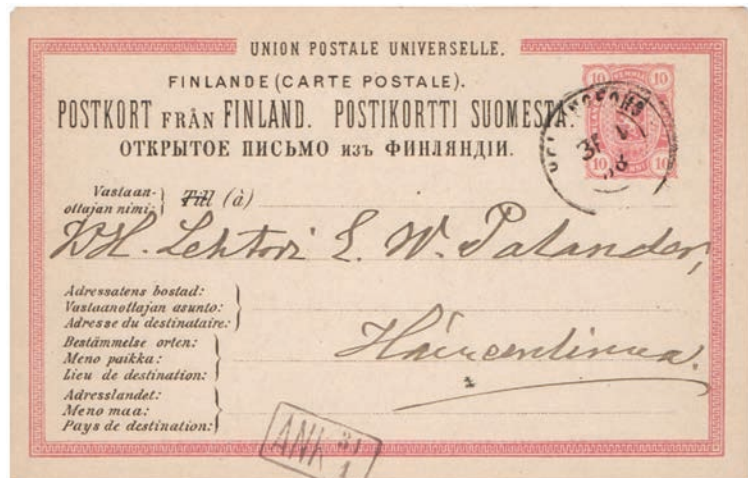 UNION POSTALE UNIVERSELLE.
FINLANDE (CARTE POSTALE).
POSTKORT FRÅN FINLAND. POSTIKORTTI SUOMESTA.
ОТКРЫТОЕ ПИСЬМО изъ ФИНЛЯНДІИ.
10 10
10 10
31
Vastaan-
ottajan nimi:
Till (à)
Lehtori E. W. Palander,
Adressatens bostad:
Vastaanottajan asunto:
Adresse du destinataire:
Hämeenlinna.
Bestämmelse orten:
Meno paikka:
Lieu de destination:
Adresslandet:
Meno maa:
Pays de destination:
ANK 31
1